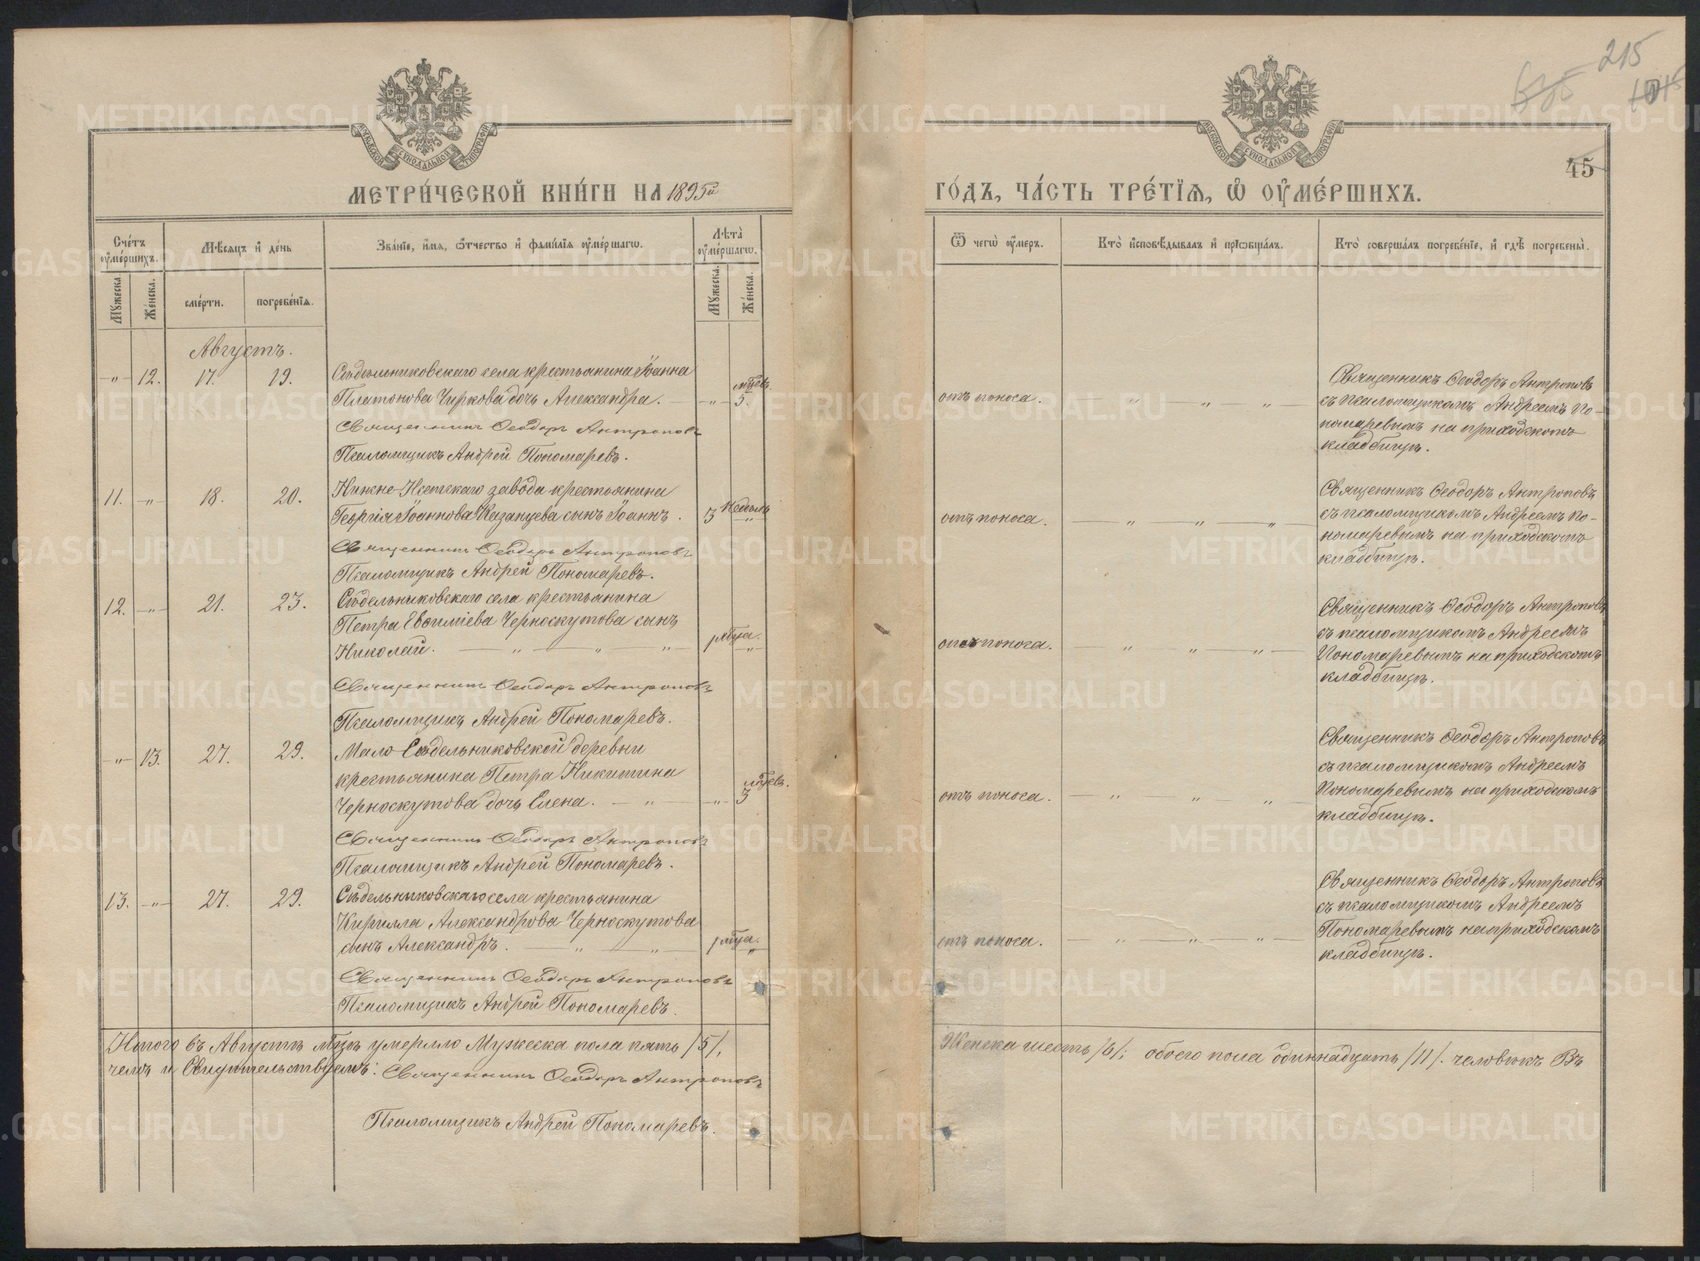 215
45
МЕТРИ́ЧЕСКОЙ КНИ́ГИ НА 1895й
ГО́ДЪ, ЧА́СТЬ ТРЕ́ТІѦ, Ѡ҆ ОУ҆МЕ́РШИХЪ.
Сче́тъ оумершихъ.
Мѣсяцъ и день
Званіе, имя, отчество и фамилія умершагω.
Лѣта оумершагω.
Мꙋжеска.
Женска.
смерти.
погребенія.
Мꙋжеска.
Женска.
Ѿ чегω оумеръ.
Кто исповѣдывалъ и пріωбщалъ.
Кто совершалъ погребеніе, и гдѣ погребены.
Августъ.
„ 12. 17. 19. Сѣдельниковскаго села крестьянина Іоанна
Платонова Чиркова дочь Александра. „ 5. мцевъ
Священникъ Ѳеодоръ Антроповъ
Псаломщикъ Андрей Пономаревъ.
отъ поноса. „ „ „
Священникъ Ѳеодоръ Антроповъ
съ псаломщикомъ Андреемъ По-
номаревымъ на приходскомъ
кладбищѣ.
11. „ 18. 20. Нижне-Исетскаго завода крестьянина
Георгія Іоаннова Казанцева сынъ Іоаннъ. 3 недѣль „
Священникъ Ѳеодоръ Антроповъ
Псаломщикъ Андрей Пономаревъ.
отъ поноса. „ „ „
Священникъ Ѳеодоръ Антроповъ
съ псаломщикомъ Андреемъ По-
номаревымъ на приходскомъ
кладбищѣ.
12. „ 21. 23. Сѣдельниковскаго села крестьянина
Петра Евѳиміева Черноскутова сынъ
Николай. „ „ „ 1 мца. „
Священникъ Ѳеодоръ Антроповъ
Псаломщикъ Андрей Пономаревъ.
отъ поноса. „ „ „
Священникъ Ѳеодоръ Антроповъ
съ псаломщикомъ Андреемъ
Пономаревымъ на приходскомъ
кладбищѣ.
„ 13. 27. 29. Мало-Сѣдельниковской деревни
крестьянина Петра Никитина
Черноскутова дочь Елена. „ „ 3 мцевъ.
Священникъ Ѳеодоръ Антроповъ
Псаломщикъ Андрей Пономаревъ.
отъ поноса. „ „ „
Священникъ Ѳеодоръ Антроповъ
съ псаломщикомъ Андреемъ
Пономаревымъ на приходскомъ
кладбищѣ.
13. „ 27. 29. Сѣдельниковскаго села крестьянина
Кирилла Александрова Черноскутова
сынъ Александръ. „ „ 1 мца. „
Священникъ Ѳеодоръ Антроповъ
Псаломщикъ Андрей Пономаревъ.
отъ поноса. „ „ „
Священникъ Ѳеодоръ Антроповъ
съ псаломщикомъ Андреемъ
Пономаревымъ на приходскомъ
кладбищѣ.
Итого въ Августѣ мцѣ умерло Мужеска пола пять /5/, Женска шесть /6/; обоего пола одиннадцать /11/. человѣкъ Въ
чемъ и Свидѣтельствуемъ: Священникъ Ѳеодоръ Антроповъ
Псаломщикъ Андрей Пономаревъ.
METRIKI.GASO-URAL.RU